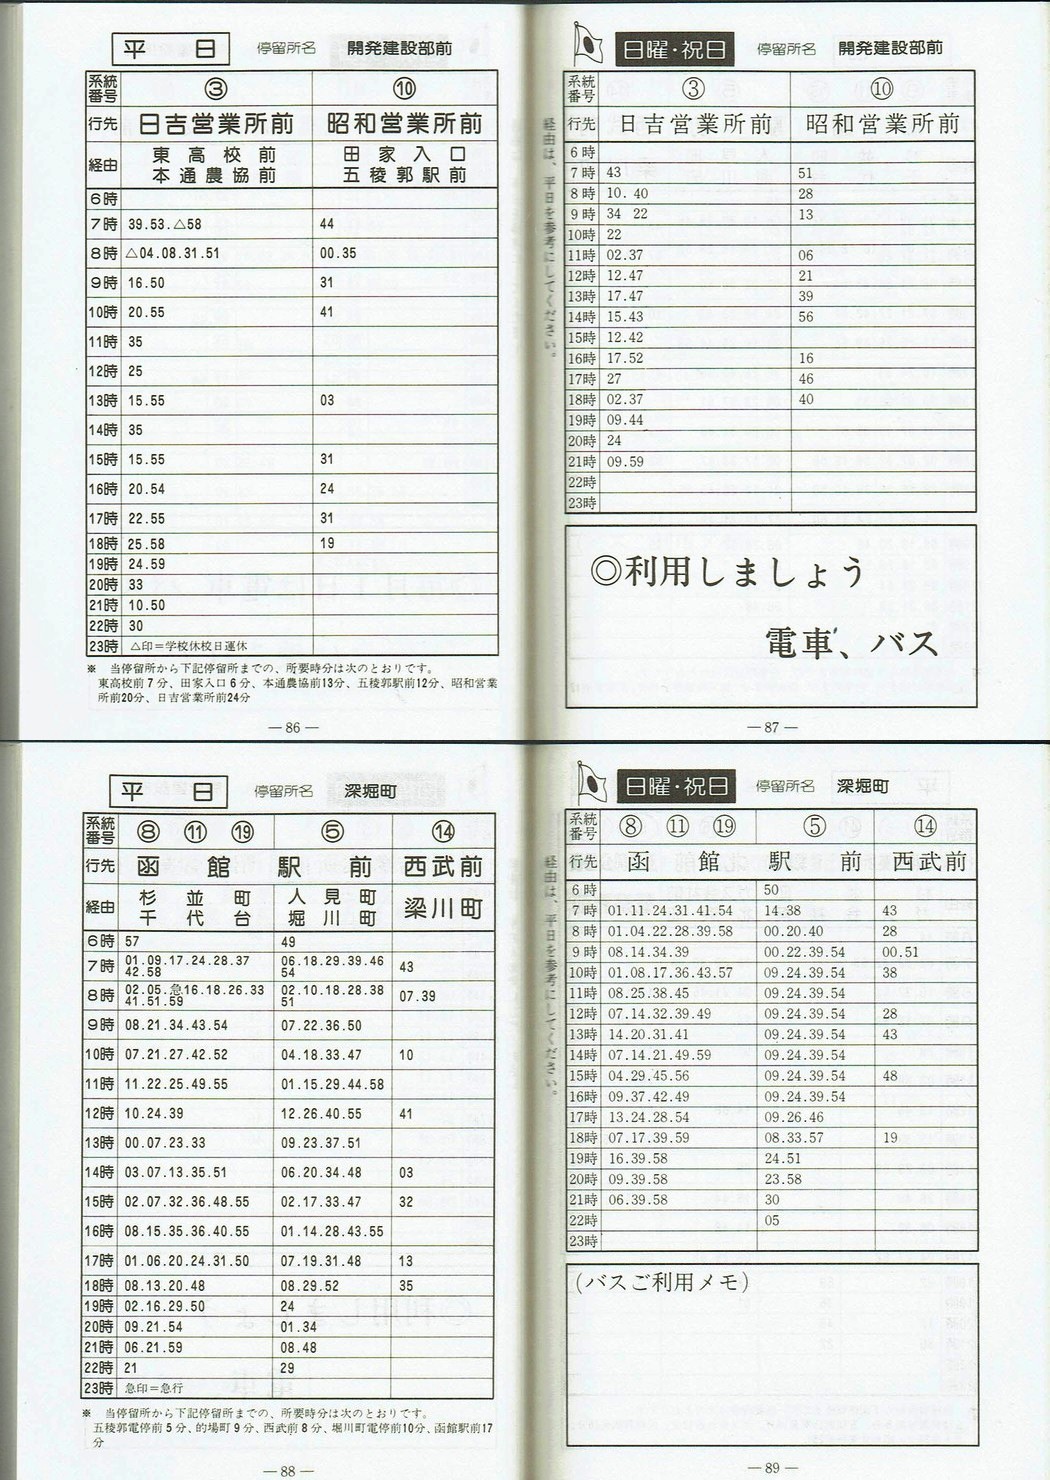 平 日 停留所名 開発建設部前
系統番号 ③ ⑩
行先 日吉営業所前 昭和営業所前
経由 東高校前 田家入口
本通農協前 五稜郭駅前
6時
7時 39.53.△58 44
8時 △04.08.31.51 00.35
9時 16.50 31
10時 20.55 41
11時 35
12時 25
13時 15.55 03
14時 35
15時 15.55 31
16時 20.54 24
17時 22.55 31
18時 25.58 19
19時 24.59
20時 33
21時 10.50
22時 30
23時 △印=学校休校日運休
※ 当停留所から下記停留所までの、所要時分は次のとおりです。
東高校前7分、田家入口6分、本通農協前13分、五稜郭駅前12分、昭和営業
所前20分、日吉営業所前24分
—86—
日曜・祝日 停留所名 開発建設部前
系統番号 ③ ⑩
行先 日吉営業所前 昭和営業所前
6時
7時 43 51
8時 10. 40 28
9時 34 22 13
10時 22
11時 02.37 06
12時 12.47 21
13時 17.47 39
14時 15.43 56
15時 12.42
16時 17.52 16
17時 27 46
18時 02.37 40
19時 09.44
20時 24
21時 09.59
22時
23時
経由は、平日を参考にしてください。
◎利用しましょう
電車、バス
—87—
平 日 停留所名 深堀町
系統番号 ⑧ ⑪ ⑲ ⑤ ⑭
行先 函館駅前 西武前
経由 杉並町 人見町 梁川町
千代台 堀川町
6時 57 49
7時 01.09.17.24.28.37 06.18.29.39.46 43
42.58 54
8時 02.05.急16.18.26.33 02.10.18.28.38 07.39
41.51.59 51
9時 08.21.34.43.54 07.22.36.50
10時 07.21.27.42.52 04.18.33.47 10
11時 11.22.25.49.55 01.15.29.44.58
12時 10.24.39 12.26.40.55 41
13時 00.07.23.33 09.23.37.51
14時 03.07.13.35.51 06.20.34.48 03
15時 02.07.32.36.48.55 02.17.33.47 32
16時 08.15.35.36.40.55 01.14.28.43.55
17時 01.06.20.24.31.50 07.19.31.48 13
18時 08.13.20.48 08.29.52 35
19時 02.16.29.50 24
20時 09.21.54 01.34
21時 06.21.59 08.48
22時 21 29
23時 急印=急行
※ 当停留所から下記停留所までの、所要時分は次のとおりです。
五稜郭電停前5分、的場町9分、西武前8分、堀川町電停前10分、函館駅前17
分
—88—
日曜・祝日 停留所名 深堀町
系統番号 ⑧ ⑪ ⑲ ⑤ ⑭
行先 函館駅前 西武前
6時 50
7時 01.11.24.31.41.54 14.38 43
8時 01.04.22.28.39.58 00.20.40 28
9時 08.14.34.39 00.22.39.54 00.51
10時 01.08.17.36.43.57 09.24.39.54 38
11時 08.25.38.45 09.24.39.54
12時 07.14.32.39.49 09.24.39.54 28
13時 14.20.31.41 09.24.39.54 43
14時 07.14.21.49.59 09.24.39.54
15時 04.29.45.56 09.24.39.54 48
16時 09.37.42.49 09.24.39.54
17時 13.24.28.54 09.26.46
18時 07.17.39.59 08.33.57 19
19時 16.39.58 24.51
20時 09.39.58 23.58
21時 06.39.58 30
22時 05
23時
経由は、平日を参考にしてください。
(バスご利用メモ)
—89—